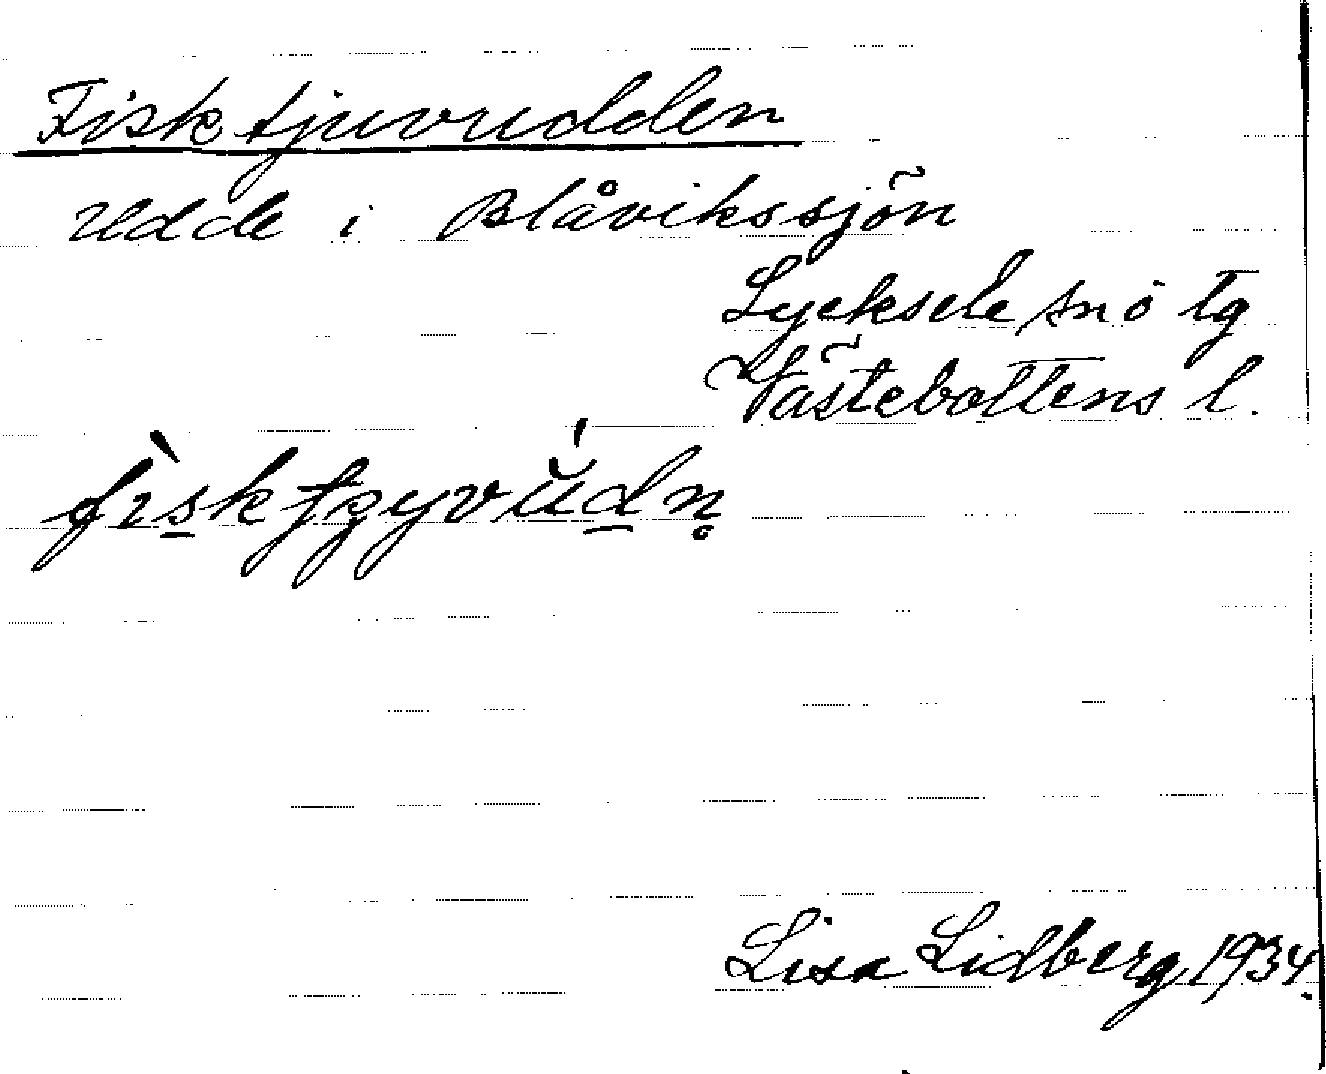 Fisktjuvudden
Udde i Blåvikssjön
Lycksele sn ö tg
Västebottens l.
Lisa Lidberg 1934.